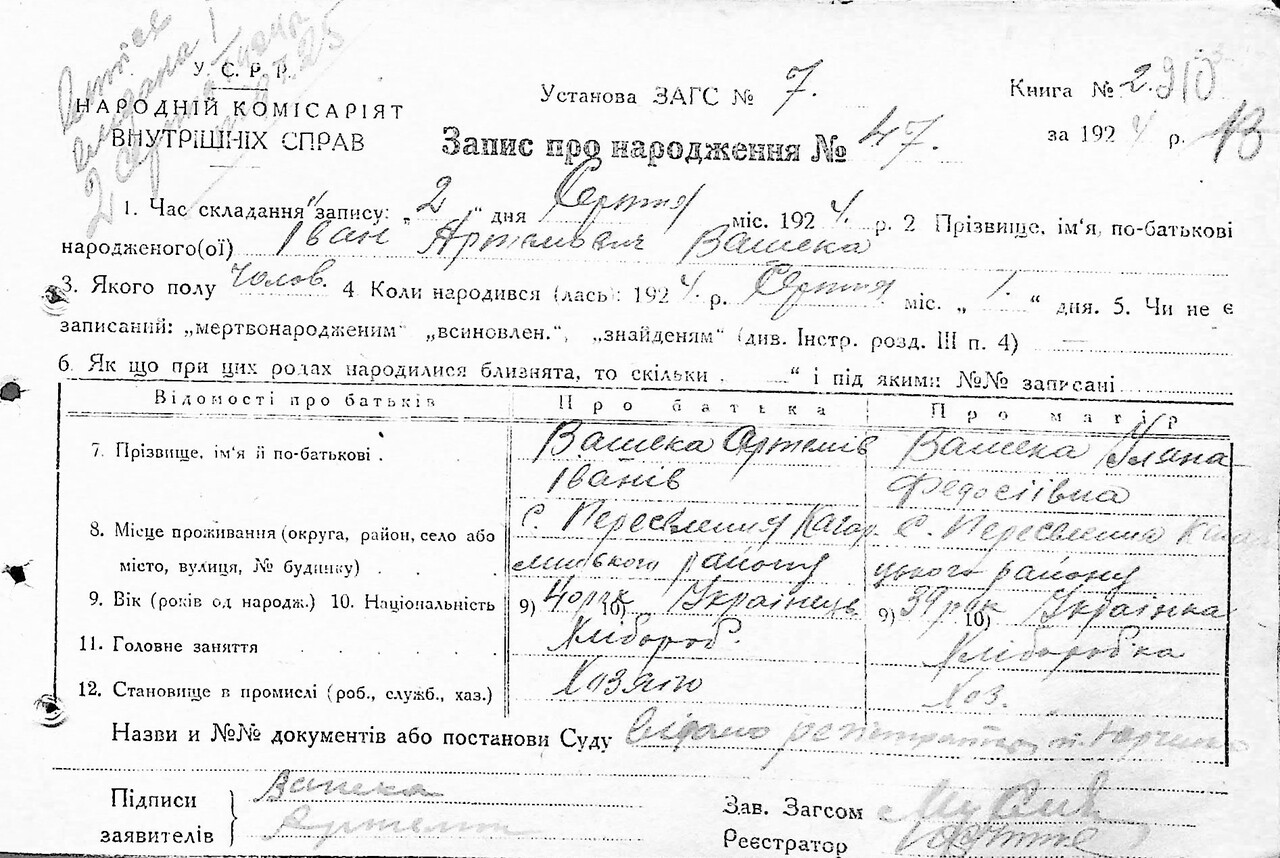 У. С. Р. Р.
НАРОДНІЙ КОМІСАРІЯТ
ВНУТРІШНІХ СПРАВ
Установа ЗАГС № 7.
Книга № 2.
за 1924 р.
Запис про народження № 47.
1. Час складання запису: „2“ дня Серпня міс. 1924. р. 2 Прізвище, ім'я, по-батькові
народженого(ої) Іван Артемович Вашека
3. Якого полу Чолов. 4 Коли народився (лась): 1924 р. Серпня міс. „1.“ дня. 5. Чи не є
записаний: „мертвонародженим“ „всиновлен.“, „знайденям“ (див. Інстр. розд. III п. 4) —
6. Як що при цих родах народилися близнята, то скільки . “ і під якими №№ записані
Відомості про батьків Про батька Про матір
7. Прізвище, ім'я й по-батькові . Вашека Артемів Вашека Уляна
Іванів Федосіївна
8. Місце проживання (округа, район, село або с. Переселення Кагар. с. Переселення
місто, вулиця, № будинку) . . лицького району цького району
9. Вік (років од народж.) 10. Національність 9) 40 рок 10) Українець 9) 39 рок 10) Українка
11. Головне заняття . . . . Хлібороб. Хліборобка
12. Становище в промислі (роб., служб., хаз.) Хозяїн Хоз.
Назви и №№ документів або постанови Суду видано
Підписи Вашека
заявителів Артем
Зав. Загсом
Реєстратор